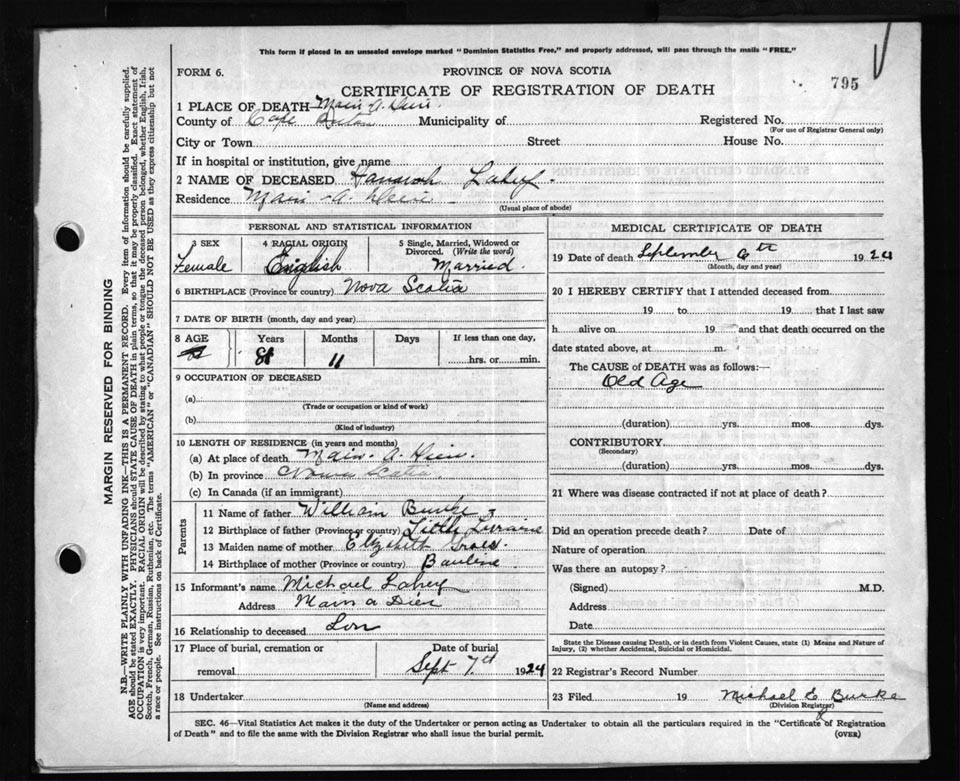 This form if placed in an unsealed envelope marked "Dominion Statistics Free," and properly addressed, will pass through the mails "FREE."
FORM 6.
PROVINCE OF NOVA SCOTIA
CERTIFICATE OF REGISTRATION OF DEATH
795
1 PLACE OF DEATH Main A. Dieu.
County of Cape Breton Municipality of Registered No.
(For use of Registrar General only)
City or Town Street House No.
If in hospital or institution, give name
2 NAME OF DECEASED Hannah Lahey
Residence Main A. Dieu
(Usual place of abode)
PERSONAL AND STATISTICAL INFORMATION
3 SEX 4 RACIAL ORIGIN 5 Single, Married, Widowed or Divorced. (Write the word)
Female English Married.
6 BIRTHPLACE (Province or country) Nova Scotia
7 DATE OF BIRTH (month, day and year)
8 AGE Years Months Days If less than one day,
81 11 hrs. or min.
9 OCCUPATION OF DECEASED
(a)
(Trade or occupation or kind of work)
(b)
(Kind of industry)
10 LENGTH OF RESIDENCE (in years and months)
(a) At place of death Main. A. Dieu.
(b) In province Nova Scotia
(c) In Canada (if an immigrant)
Parents
11 Name of father William Burke
12 Birthplace of father (Province or country) Little Lorraine
13 Maiden name of mother Elizabeth
14 Birthplace of mother (Province or country)
15 Informant's name Michael Lahey
Address Main a Dieu
16 Relationship to deceased Son
17 Place of burial, cremation or removal Date of burial
Sept 7d 1924
18 Undertaker
(Name and address)
MEDICAL CERTIFICATE OF DEATH
19 Date of death September 6th 1924
(Month, day and year)
20 I HEREBY CERTIFY that I attended deceased from
19 to 19 that I last saw
h alive on 19 and that death occurred on the
date stated above, at m.
The CAUSE of DEATH was as follows:—
Old Age
(duration) yrs. mos. dys.
CONTRIBUTORY
(Secondary)
(duration) yrs. mos. dys.
21 Where was disease contracted if not at place of death?
Did an operation precede death? Date of
Nature of operation
Was there an autopsy?
(Signed) M.D.
Address
Date
State the Disease causing Death, or in death from Violent Causes, state (1) Means and Nature of
Injury, (2) whether Accidental, Suicidal or Homicidal.
22 Registrar's Record Number
23 Filed 19 Michael E Burke
(Division Registrar)
SEC. 46—Vital Statistics Act makes it the duty of the Undertaker or person acting as Undertaker to obtain all the particulars required in the "Certificate of Registration
of Death" and to file the same with the Division Registrar who shall issue the burial permit.
(OVER)
MARGIN RESERVED FOR BINDING
N.B.—WRITE PLAINLY WITH UNFADING INK—THIS IS A PERMANENT RECORD. Every item of information should be carefully supplied.
AGE should be stated EXACTLY. PHYSICIANS should STATE CAUSE OF DEATH in plain terms, so that it may be properly classified. Exact statement of
OCCUPATION is very important. RACIAL ORIGIN will be described by stating to what people or tongue the deceased person belonged, whether English, Irish,
Scotch, French, German, Russian, Ruthenian, etc. The terms "AMERICAN" or "CANADIAN" SHOULD NOT BE USED as they express citizenship but not
a race or people. See instructions on back of Certificate.